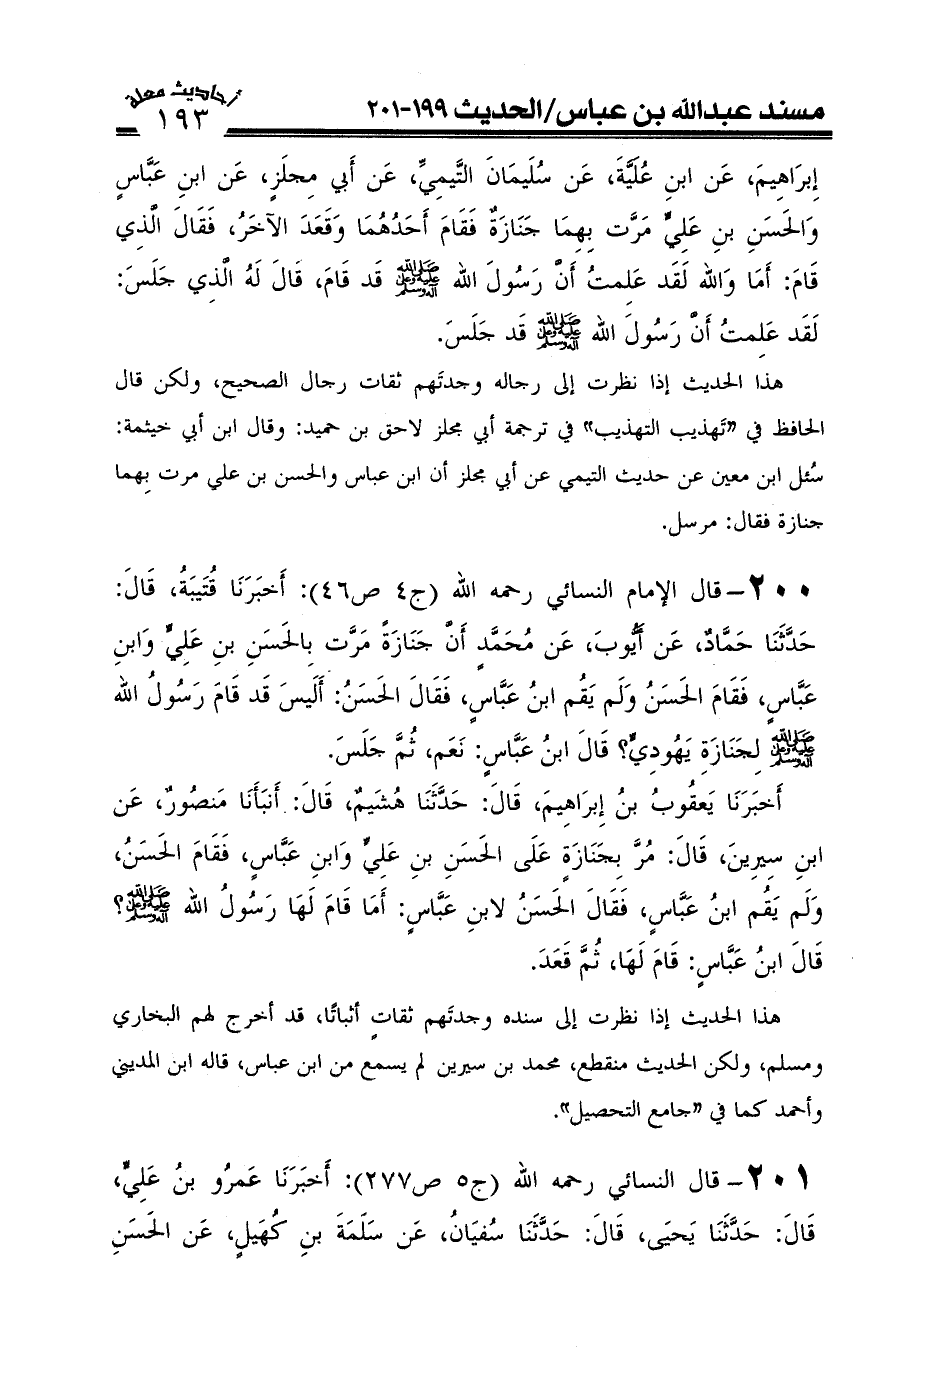 مسند عبدالله بن عباس/الحديث ١٩٩-٢٠١
أحاديث معلة
١٩٣
إِبرَاهِيمَ، عَن ابنِ عُلَيَّةَ، عَن سُلَيمَانَ التَّيمِيِّ، عَن أَبي مِجلَزٍ، عَن ابنِ عَبَّاسٍ
وَالحَسَنِ بنِ عَلِيٍّ مَرَّت بِهِمَا جَنَازَةٌ فَقَامَ أَحَدُهُمَا وَقَعَدَ الآخَرُ، فَقَالَ الَّذِي
قَامَ: أَمَا وَالله لَقَد عَلِمتُ أَنَّ رَسُولَ الله ﷺ قَد قَامَ، قَالَ لَهُ الَّذِي جَلَسَ:
لَقَد عَلِمتُ أَنَّ رَسُولَ الله ﷺ قَد جَلَسَ.
هذا الحديث إذا نظرت إلى رجاله وجدتَهم ثقات رجال الصحيح، ولكن قال
الحافظ في «تَهذيب التهذيب» في ترجمة أبي مجلز لاحق بن حميد: وقال ابن أبي خيثمة:
سُئل ابن معين عن حديث التيمي عن أبي مجلز أن ابن عباس والحسن بن علي مرت بِهما
جنازة فقال: مرسل.
٢٠٠- قال الإمام النسائي رحمه الله (ج٤ ص٤٦): أَخبَرَنَا قُتَيبَةُ، قَالَ:
حَدَّثَنَا حَمَّادٌ، عَن أَيُّوبَ، عَن مُحَمَّدٍ أَنَّ جَنَازَةً مَرَّت بِالحَسَنِ بنِ عَلِيٍّ وَابنِ
عَبَّاسٍ، فَقَامَ الحَسَنُ وَلَم يَقُم ابنُ عَبَّاسٍ، فَقَالَ الحَسَنُ: أَلَيسَ قَد قَامَ رَسُولُ الله
ﷺ لِجَنَازَةِ يَهُودِيٍّ؟ قَالَ ابنُ عَبَّاسٍ: نَعَم، ثُمَّ جَلَسَ.
أَخبَرَنَا يَعقُوبُ بنُ إِبرَاهِيمَ، قَالَ: حَدَّثَنَا هُشَيمٌ، قَالَ: أَنبَأَنَا مَنصُورٌ، عَن
ابنِ سِيرِينَ، قَالَ: مُرَّ بِجَنَازَةٍ عَلَى الحَسَنِ بنِ عَلِيٍّ وَابنِ عَبَّاسٍ، فَقَامَ الحَسَنُ،
وَلَم يَقُم ابنُ عَبَّاسٍ، فَقَالَ الحَسَنُ لابنِ عَبَّاسٍ: أَمَا قَامَ لَهَا رَسُولُ الله ﷺ؟
قَالَ ابنُ عَبَّاسٍ: قَامَ لَهَا، ثُمَّ قَعَدَ.
هذا الحديث إذا نظرت إلى سنده وجدتَهم ثقاتٍ أثباتًا، قد أخرج لهم البخاري
ومسلم، ولكن الحديث منقطع، محمد بن سيرين لم يسمع من ابن عباس، قاله ابن المديني
وأحمد كما في «جامع التحصيل».
٢٠١- قال النسائي رحمه الله (ج٥ ص٢٧٧): أَخبَرَنَا عَمرُو بنُ عَلِيٍّ،
قَالَ: حَدَّثَنَا يَحيَى، قَالَ: حَدَّثَنَا سُفيَانُ، عَن سَلَمَةَ بنِ كُهَيلٍ، عَن الحَسَنِ